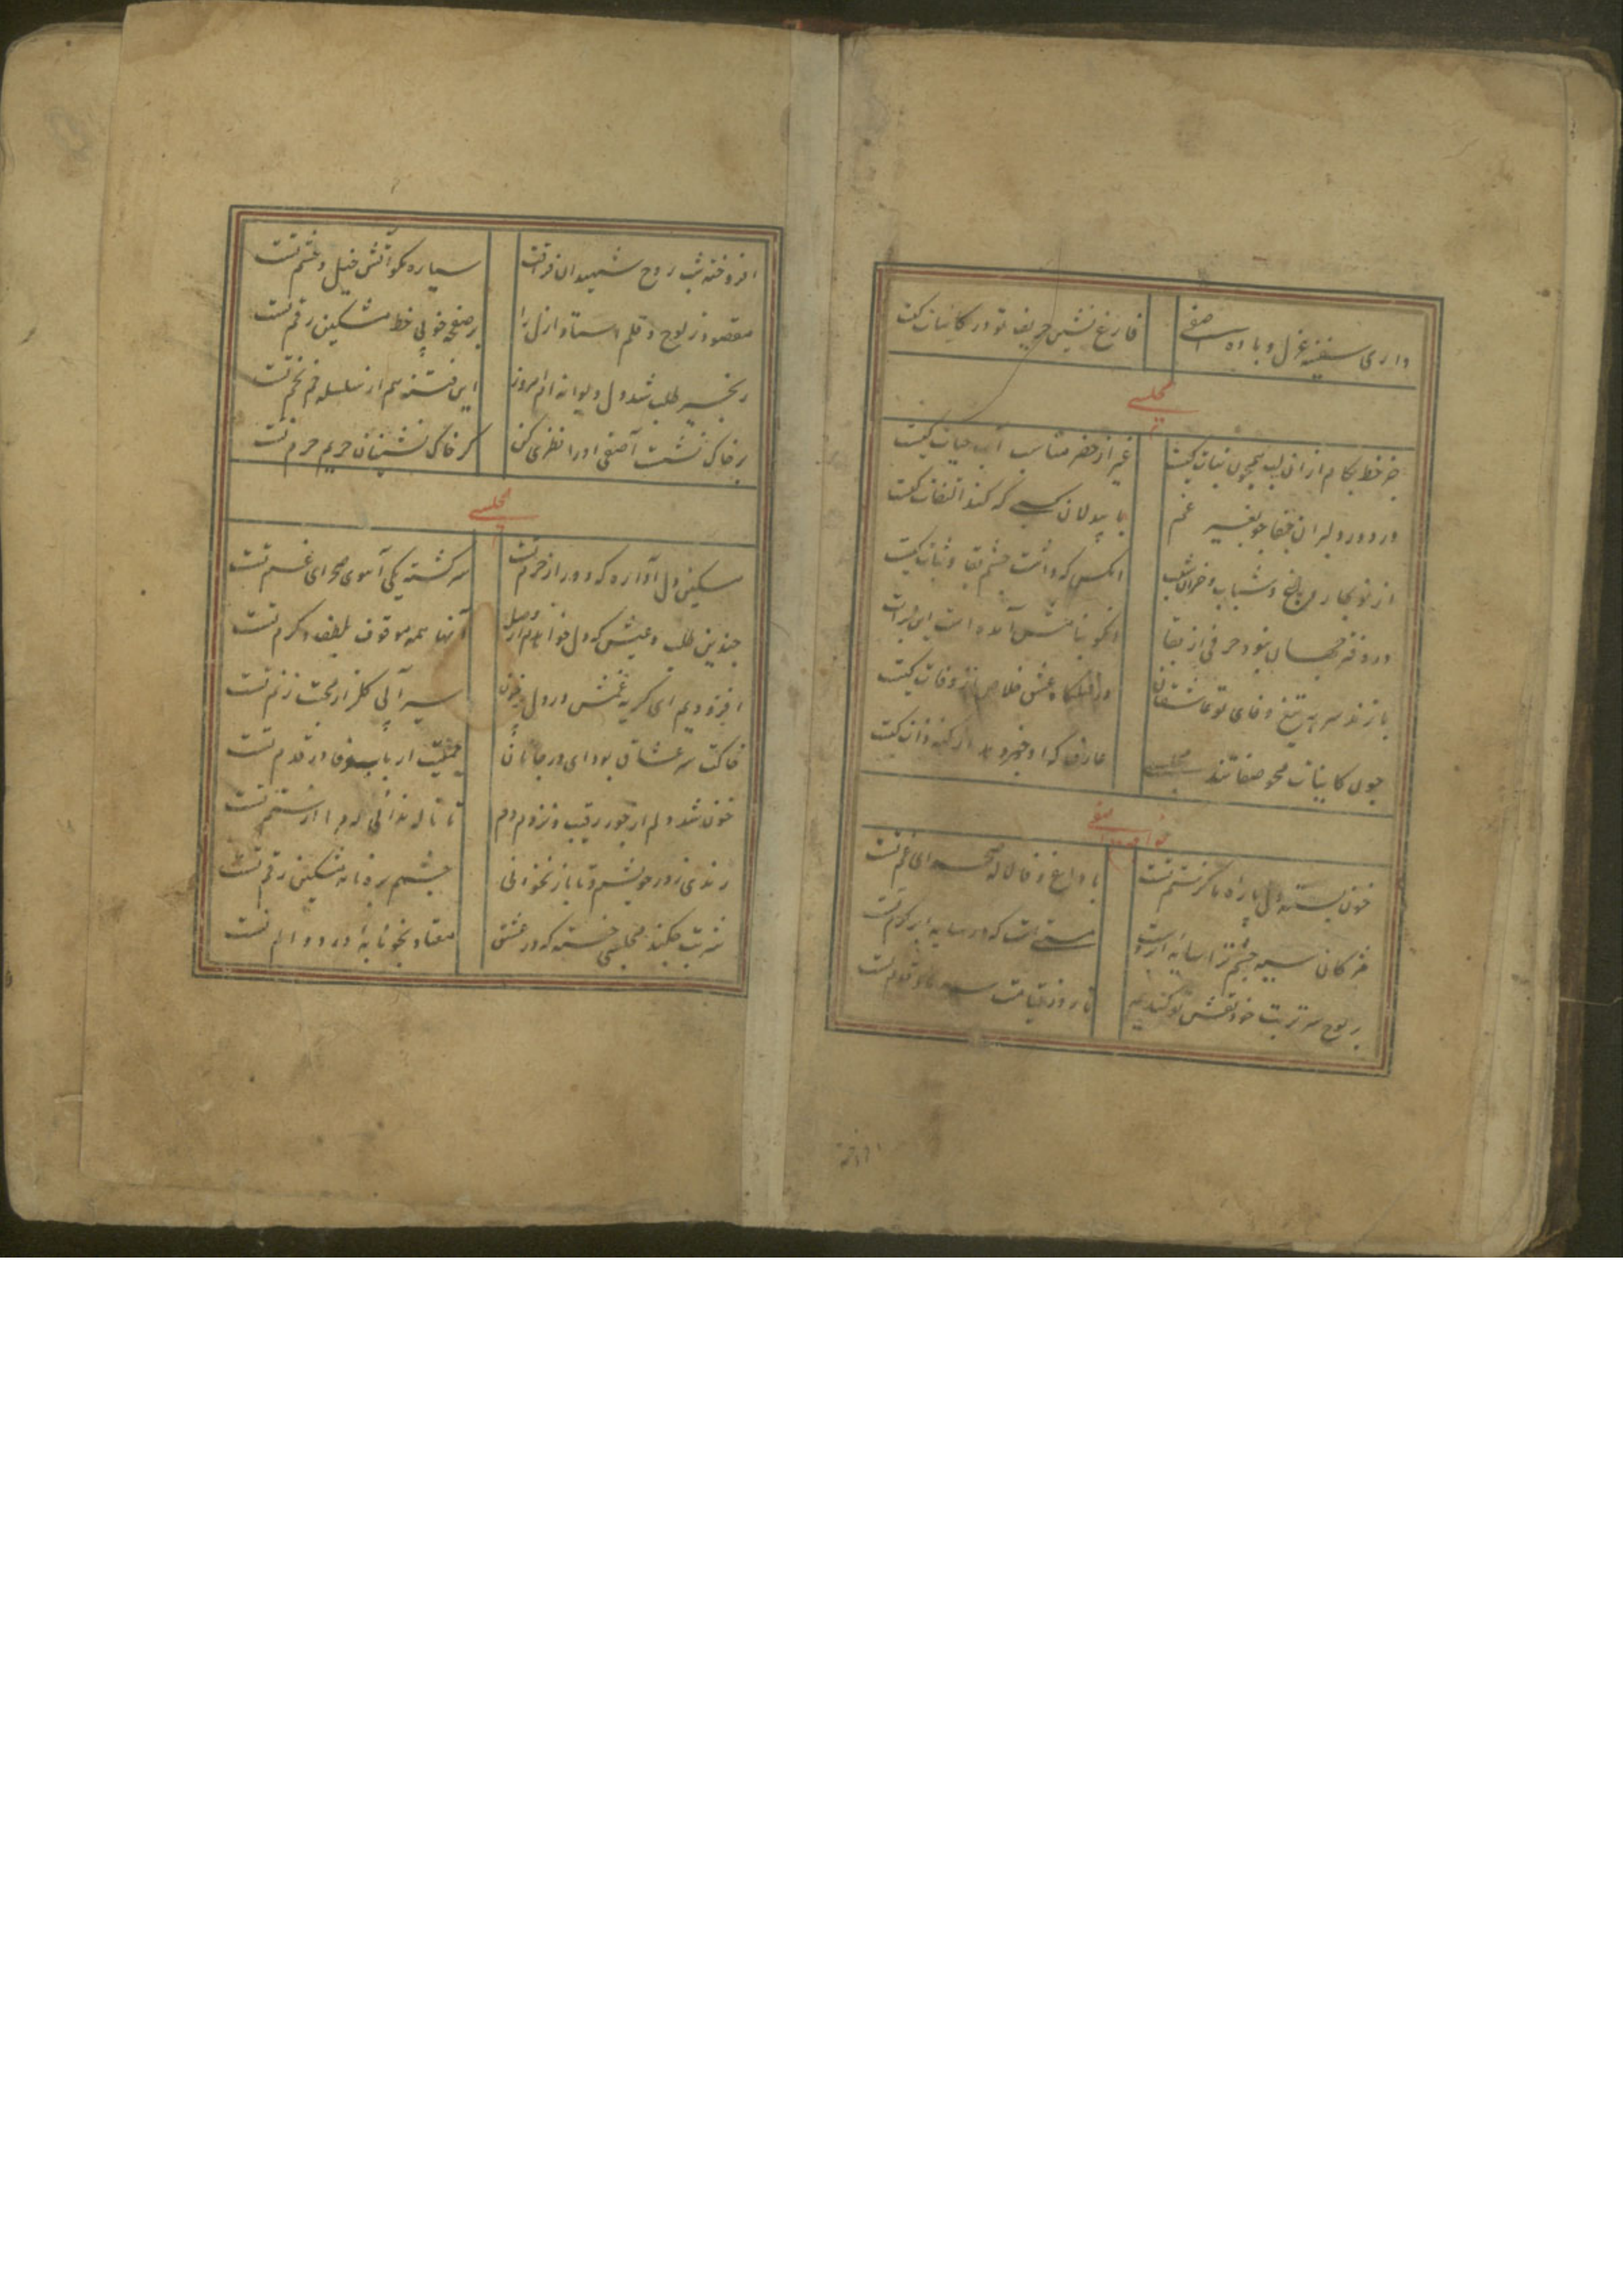 داری سفینه غزل و باده آصفی
فارغ نشین حریف تو در کاینات کیست
مجلسی
جز خط بکام ازان لب همچون نبات کیست
غیر از خضر مناسب آب حیات کیست
در دور دلبران جفاجو بغیر غم
با بیدلان کسی که کند التفات کیست
از نوبهار و شباب و
انکس که داشت چشم بقا و ثبات کیست
در دفتر جهان نبود حرفی از بقا
انکو بنامش آمده است این برات
بازند سر به تیغ وفای تو عاشقان
عشق خلاص از وفات کیست
چون کاینات محو صفاتند مجلسی
عارف که از کنه ذات کیست
خواجه آصفی
خون بسته دل پاره ما کز ستم تست
با داغ وفا لاله صحرای غم تست
مژکان سیه چشم ترا سایه ابروست
مستی است که در سایه ابر کرم تست
بر لوح سر تربت خود نقش تو کندیم
تا روز قیامت سر ما و قدم تست
افروخته شب روح شهیدان فراقت
سیاره مگو آتش خیل و حشم تست
مقصود ز لوح و قلم استاد ازل را
بر صفحه خوبی خط مشکین رقم تست
زنجیر طلب شد دل دیوانه ام امروز
این فتنه هم از سلسله خم بخم تست
بر خاک نشست آصفی او را نظری کن
کز خاک نشینان حریم حرم تست
مجلسی
مسکین دل آواره که دور از حرم تست
سرگشته یکی آهوی صحرای غم تست
چندین طلب و عیش که دل خواهدم از وصل
آنها همه موقوف بلطف و کرم تست
افزودیم ای گریه غمش در دل پرخون
سیرابی گلزار محبت ز نم تست
خاکت سر عشاق بود ای در جانان
جمعیت ارباب وفا در قدم تست
خون شد دلم از جور رقیب و نزدم دم
تا ناله ندانی که مرا از ستم تست
رندی ز در خویشم و تا باز نخوانی
چشمم بره نامه مشکین رقم تست
شربت چکند مجلسی خسته که در عشق
معتاد بخونابه درد و الم تست